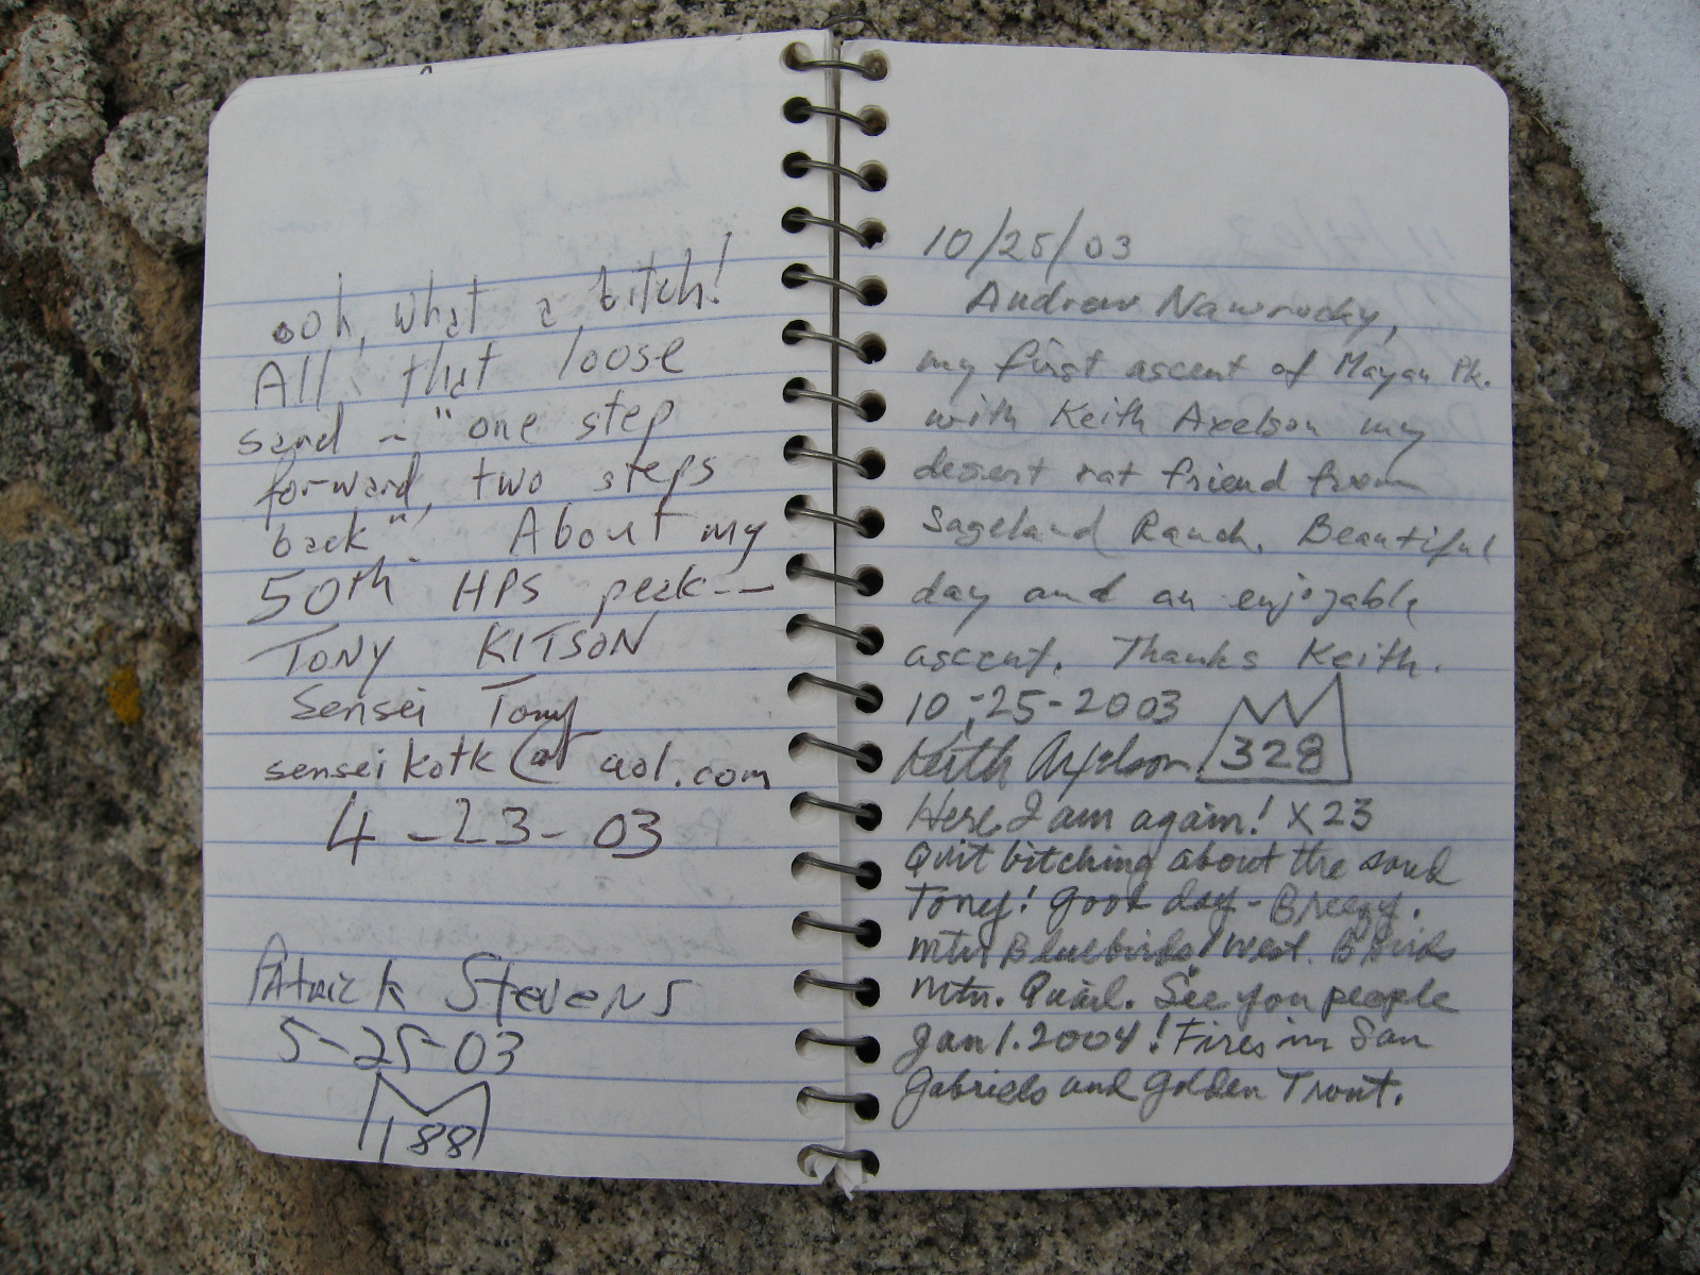 ooh, what a bitch!
All that loose
sand ~ "one step
forward, two steps
back". About my
50th HPS peak--
TONY KITSON
Sensei Tony
senseikotk@aol.com
4-23-03
Patrick Stevens
5-25-03
188
10/25/03
Andrew Nawrocky,
my first ascent of Mayan Pk.
with Keith Axelson my
desert rat friend from
Sageland Ranch. Beautiful
day and an enjoyable
ascent. Thanks Keith.
10-25-2003
Keith Axelson 328
Here I am again! X23
Quit bitching about the sand
Tony! Good day - Breezy.
Mtn Bluebirds! West. B birds
Mtn. Quail. See you people
Jan 1. 2004! Fires in San
Gabriels and Golden Trout.